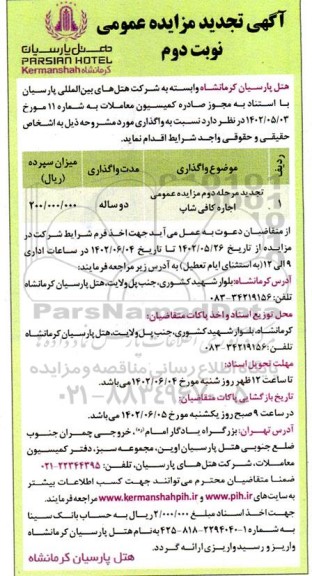 آگهی تجدید مزایده عمومی
نوبت دوم
هتل پارسیان
PARSIAN HOTEL
Kermanshah کرمانشاه
هتل پارسیان کرمانشاه وابسته به شرکت هتل‌های بین‌المللی پارسیان
با استناد به مجوز صادره کمیسیون معاملات به شماره ۱۱ مورخ
۱۴۰۲/۰۵/۰۳ در نظر دارد نسبت به واگذاری مورد مشروحه ذیل به اشخاص
حقیقی و حقوقی واجد شرایط اقدام نماید.
ردیف موضوع واگذاری مدت واگذاری میزان سپرده (ریال)
۱ تجدید مرحله دوم مزایده عمومی اجاره کافی شاپ دو ساله ۲۰۰/۰۰۰/۰۰۰
از متقاضیان دعوت به عمل می‌آید جهت اخذ فرم شرایط شرکت در
مزایده از تاریخ ۱۴۰۲/۰۵/۲۶ تا تاریخ ۱۴۰۲/۰۶/۰۴ در ساعات اداری
۹ الی ۱۲ (به استثنای ایام تعطیل) به آدرس زیر مراجعه فرمایند:
آدرس کرمانشاه: بلوار شهید کشوری، جنب پل ولایت، هتل پارسیان کرمانشاه
تلفن: ۳۴۲۱۹۱۵۶-۰۸۳
محل توزیع اسناد و اخذ پاکات متقاضیان:
کرمانشاه، بلوار شهید کشوری، جنب پل ولایت، هتل پارسیان کرمانشاه
تلفن: ۳۴۲۱۹۱۵۶-۰۸۳
مهلت تحویل اسناد:
تا ساعت ۱۲ ظهر روز شنبه مورخ ۱۴۰۲/۰۶/۰۴ می‌باشد.
تاریخ بازگشایی پاکات متقاضیان:
در ساعت ۹ صبح روز یکشنبه مورخ ۱۴۰۲/۰۶/۰۵ می‌باشد.
آدرس تهران: بزرگراه یادگار امام (ره)، خروجی چمران جنوب
ضلع جنوبی هتل پارسیان اوین، مجموعه سبز، دفتر کمیسیون
معاملات، شرکت هتل‌های پارسیان، تلفن: ۲۲۳۴۴۳۹۵-۰۲۱
ضمنا متقاضیان محترم می‌توانند جهت کسب اطلاعات بیشتر
به سایت‌های www.pih.ir و www.kermanshahpih.ir مراجعه فرمایند.
جهت اخذ اسناد مبلغ ۲/۰۰۰/۰۰۰ ریال به حساب بانک سینا
به شماره ۱-۲۲۹۴۰۴۰-۸۱۸-۴۲۵ به نام هتل پارسیان کرمانشاه
واریز و رسید واریزی ارائه گردد.
هتل پارسیان کرمانشاه